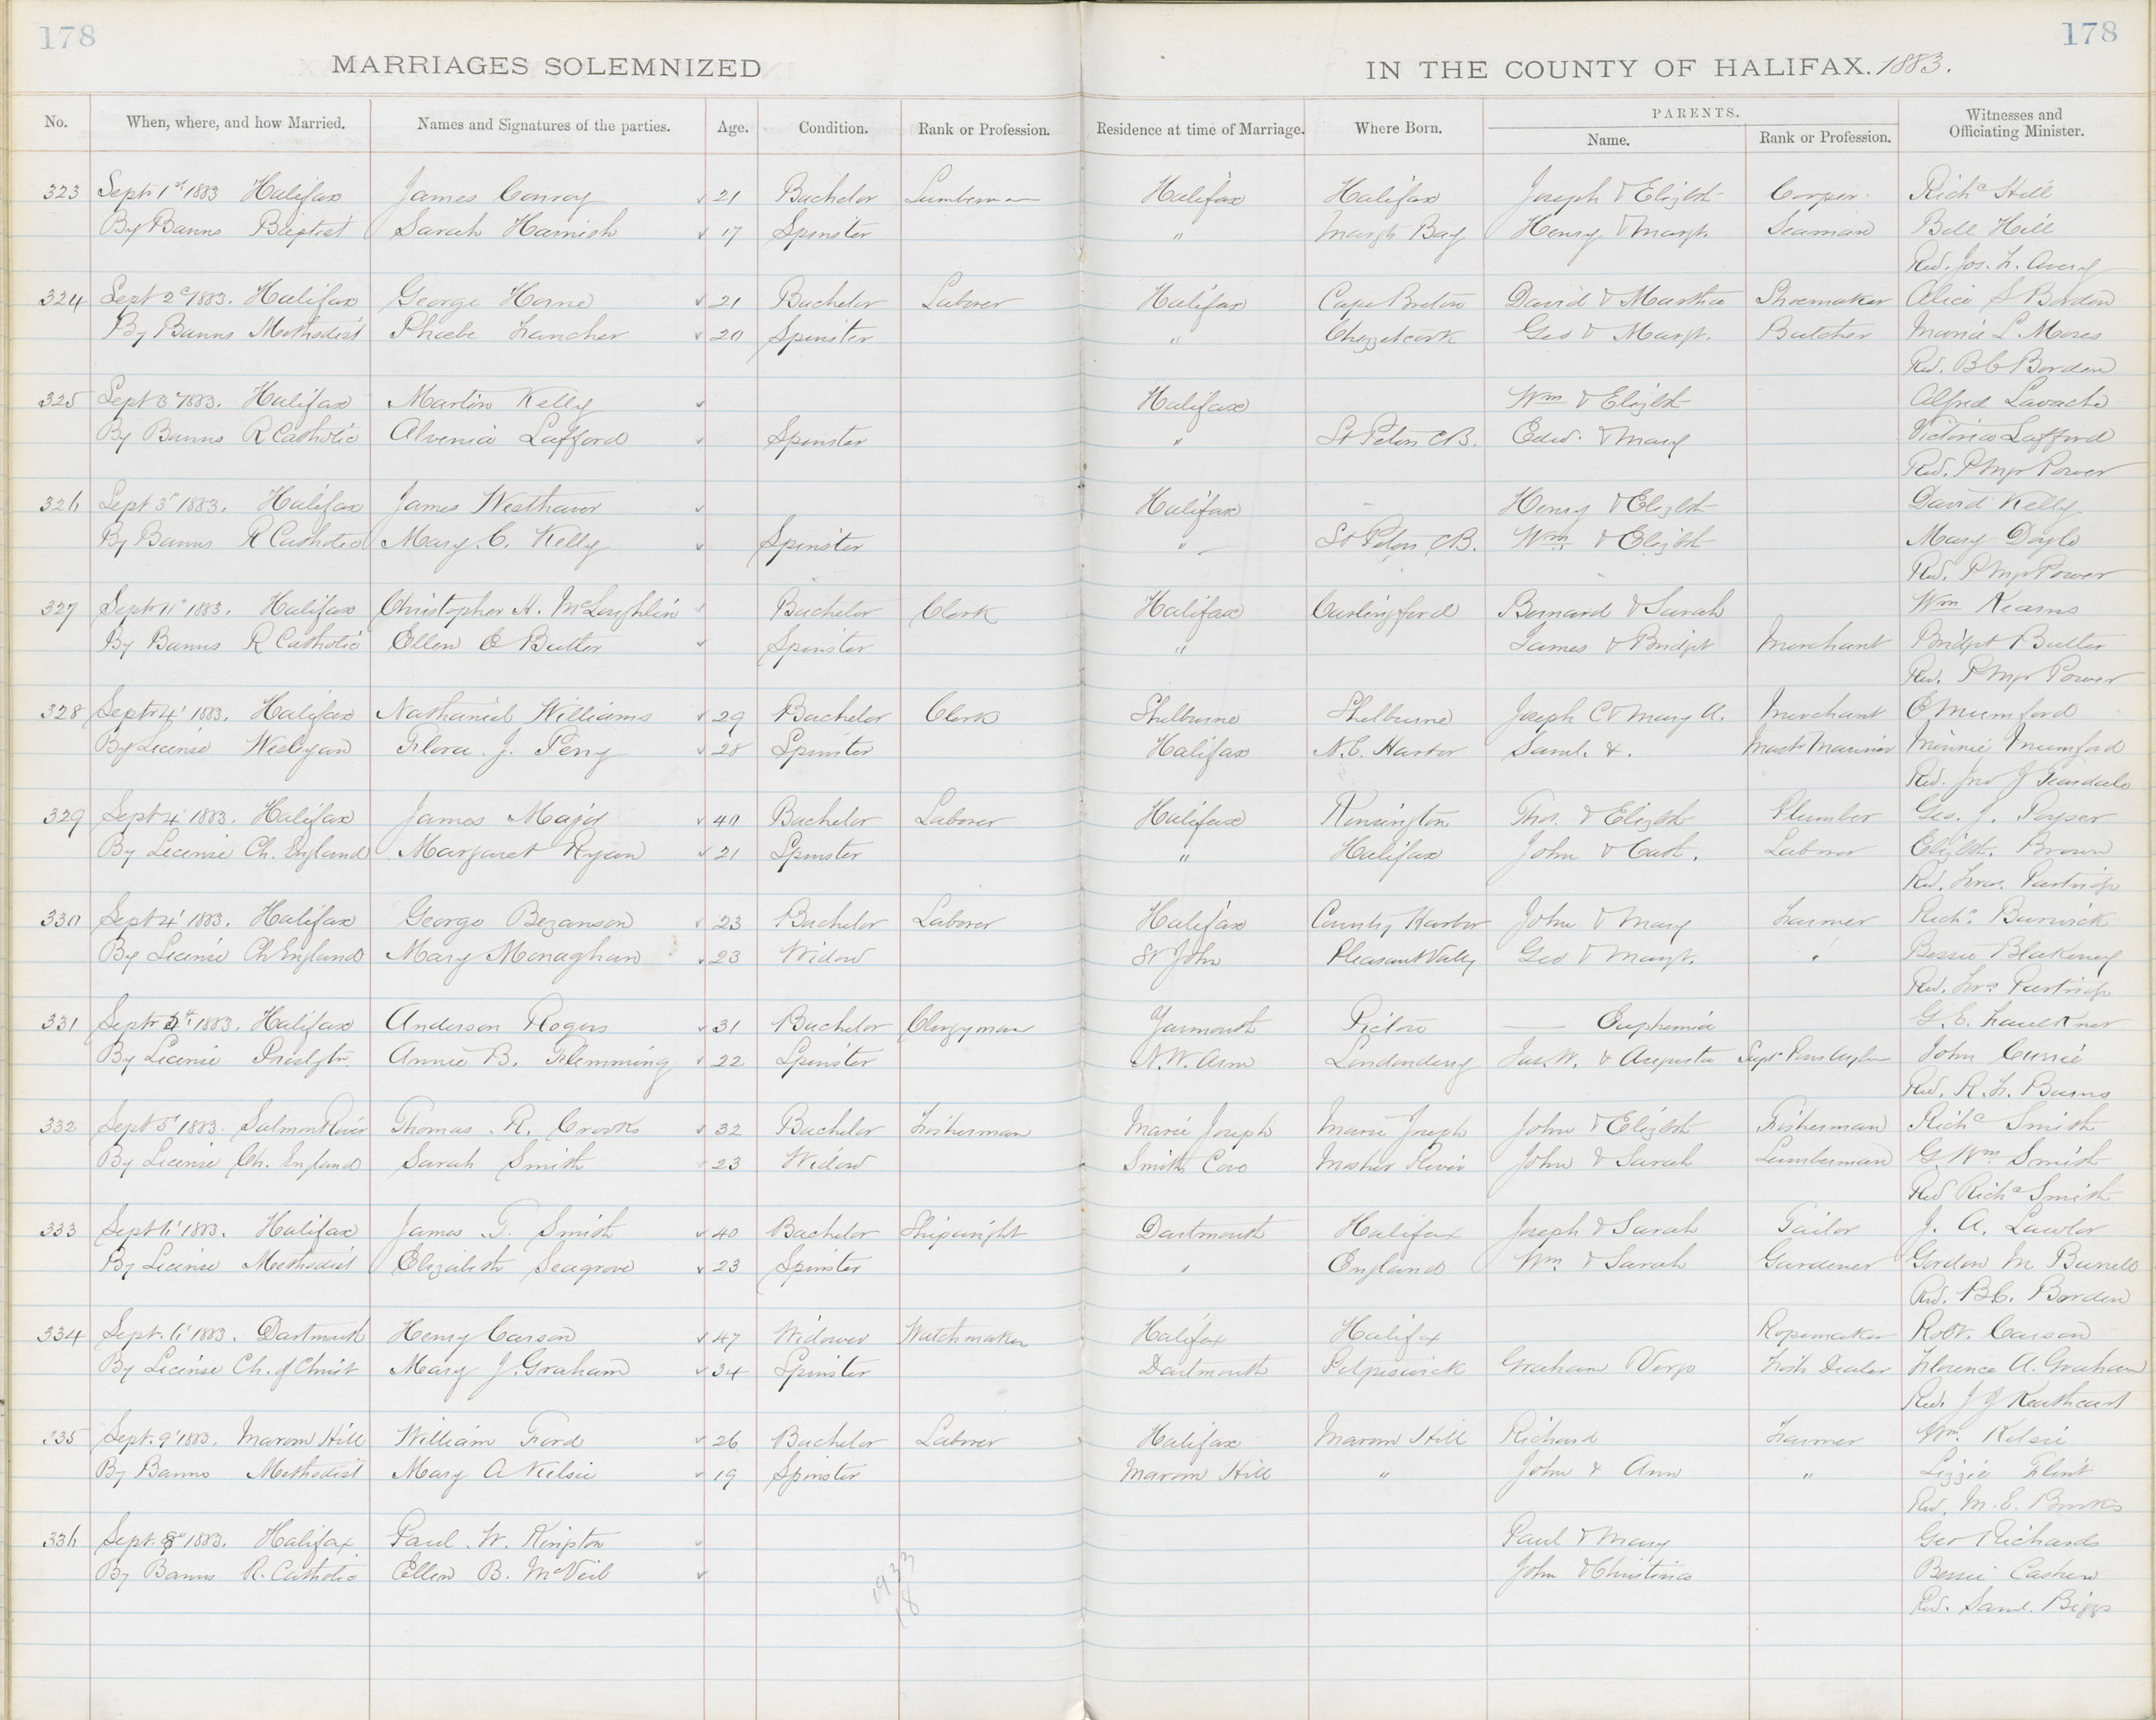 178
178
MARRIAGES SOLEMNIZED IN THE COUNTY OF HALIFAX. 1883.
No. When, where, and how Married. Names and Signatures of the parties. Age. Condition. Rank or Profession. Residence at time of Marriage. Where Born. PARENTS. Name. Rank or Profession. Witnesses and Officiating Minister.
323 Sept 1st 1883 Halifax James Conroy 21 Bachelor Lumberman Halifax Halifax Joseph & Elizbt Cooper Richd Hill
By Banns Baptist Sarah Harnish 17 Spinster " Margts Bay Henry & Margt. Seaman Bell Hill
Rev. Jos. F. Avery
324 Sept 2d 1883. Halifax George Horne 21 Bachelor Laborer Halifax Cape Breton David & Martha Shoemaker Alice S Borden
By Banns Methodist Phoebe Fancher 20 Spinster " Chezzetcook Geo & Margt. Butcher Maria L. Moses
Rev. B C Borden
325 Sept 3 1883. Halifax Martin Kelly Halifax Wm & Elizbt Alfred Lavache
By Banns R Catholic Alvenia Lafford Spinster " St Peters CB. Edwd & Mary Victoria Lafford
Rev. P Mgr Power
326 Sept 3d 1883. Halifax James Westhaver Halifax Henry & Elizbt David Kelly
By Banns R Catholic Mary C. Kelly Spinster " St Peters CB. Wm & Elizbt Mary Doyle
Rev. P Mgr Power
327 Sept 11 1883. Halifax Christopher H. McLaughlin Bachelor Clerk Halifax Carlingford Bernard & Sarah Wm Kearns
By Banns R Catholic Ellen E Butler Spinster " James & Bridgt Merchant Bridgt Butler
Rev. P Mgr Power
328 Sept 4' 1883. Halifax Nathaniel Williams 29 Bachelor Clerk Shelburne Shelburne Joseph C & Mary A. Merchant C Mumford
By License Wesleyan Flora J. Perry 28 Spinster Halifax N.E. Harbor Saml. &. Mastr Mariner Minnie Mumford
Rev. Jno J Teasdale
329 Sept 4' 1883. Halifax James Major 40 Bachelor Laborer Halifax Kensington Thos. & Elizbt Plumber Geo. J. Payser
By License Ch. England Margaret Ryan 21 Spinster " Halifax John & Cath. Laborer Elizbt. Brown
Rev. Fras. Partridge
330 Sept 4' 1883. Halifax George Bezanson 23 Bachelor Laborer Halifax Country Harbor John & Mary Farmer Richd
By License Ch England Mary Monaghan 23 Widow St John Pleasant Vally Geo & Margt. " Bessie Blakeney
Rev. Fras Partridge
331 Septr 5th 1883. Halifax Anderson Rogers 31 Bachelor Clergyman Yarmouth Pictou — Euphemia G. E. Faulkner
By License Presbytr. Annie B. Flemming 22 Spinster N.W. Arm Londonderry Jas. W. & Augusta John Currie
Rev. R. F. Burns
332 Sept 5' 1883. Salmon River Thomas R. Crooks 32 Bachelor Fisherman Marie Joseph Marie Joseph John & Elizbt Fisherman Richd Smith
By License Ch. England Sarah Smith 23 Widow Smith Cove Mosher River John & Sarah Lumberman G. Wm Smith
Rev Richd Smith
333 Sept 6' 1883. Halifax James T. Smith 40 Bachelor Shipwright Dartmouth Halifax Joseph & Sarah Tailor J. A. Lawlor
By License Methodist Elizabeth Seagrove 23 Spinster " England Wm. & Sarah Gardener Gordon M
Rev. B C. Borden
334 Sept. 6' 1883. Dartmouth Henry Carson 47 Widower Watchmaker Halifax Halifax Ropemaker Robt. Carson
By License Ch. of Christ Mary J. Graham 34 Spinster Dartmouth Petpiswick Graham Fish Dealer Florence A. Graham
Rev. J
335 Sept. 9' 1883. Maroon Hill William Ford 26 Bachelor Laborer Halifax Maroon Hill Richard Farmer Wm. Kelsie
By Banns Methodist Mary A Kelsie 19 Spinster Maroon Hill " John & Ann " Lizzie Flint
Rev. M. E.
336 Sept. 8 1883. Halifax Paul W. Kingston Paul & Mary Geo Richards
By Banns R. Catholic Ellen B. McNeil John & Christina Bessie
Rev. Saml. Biggs
1933
18